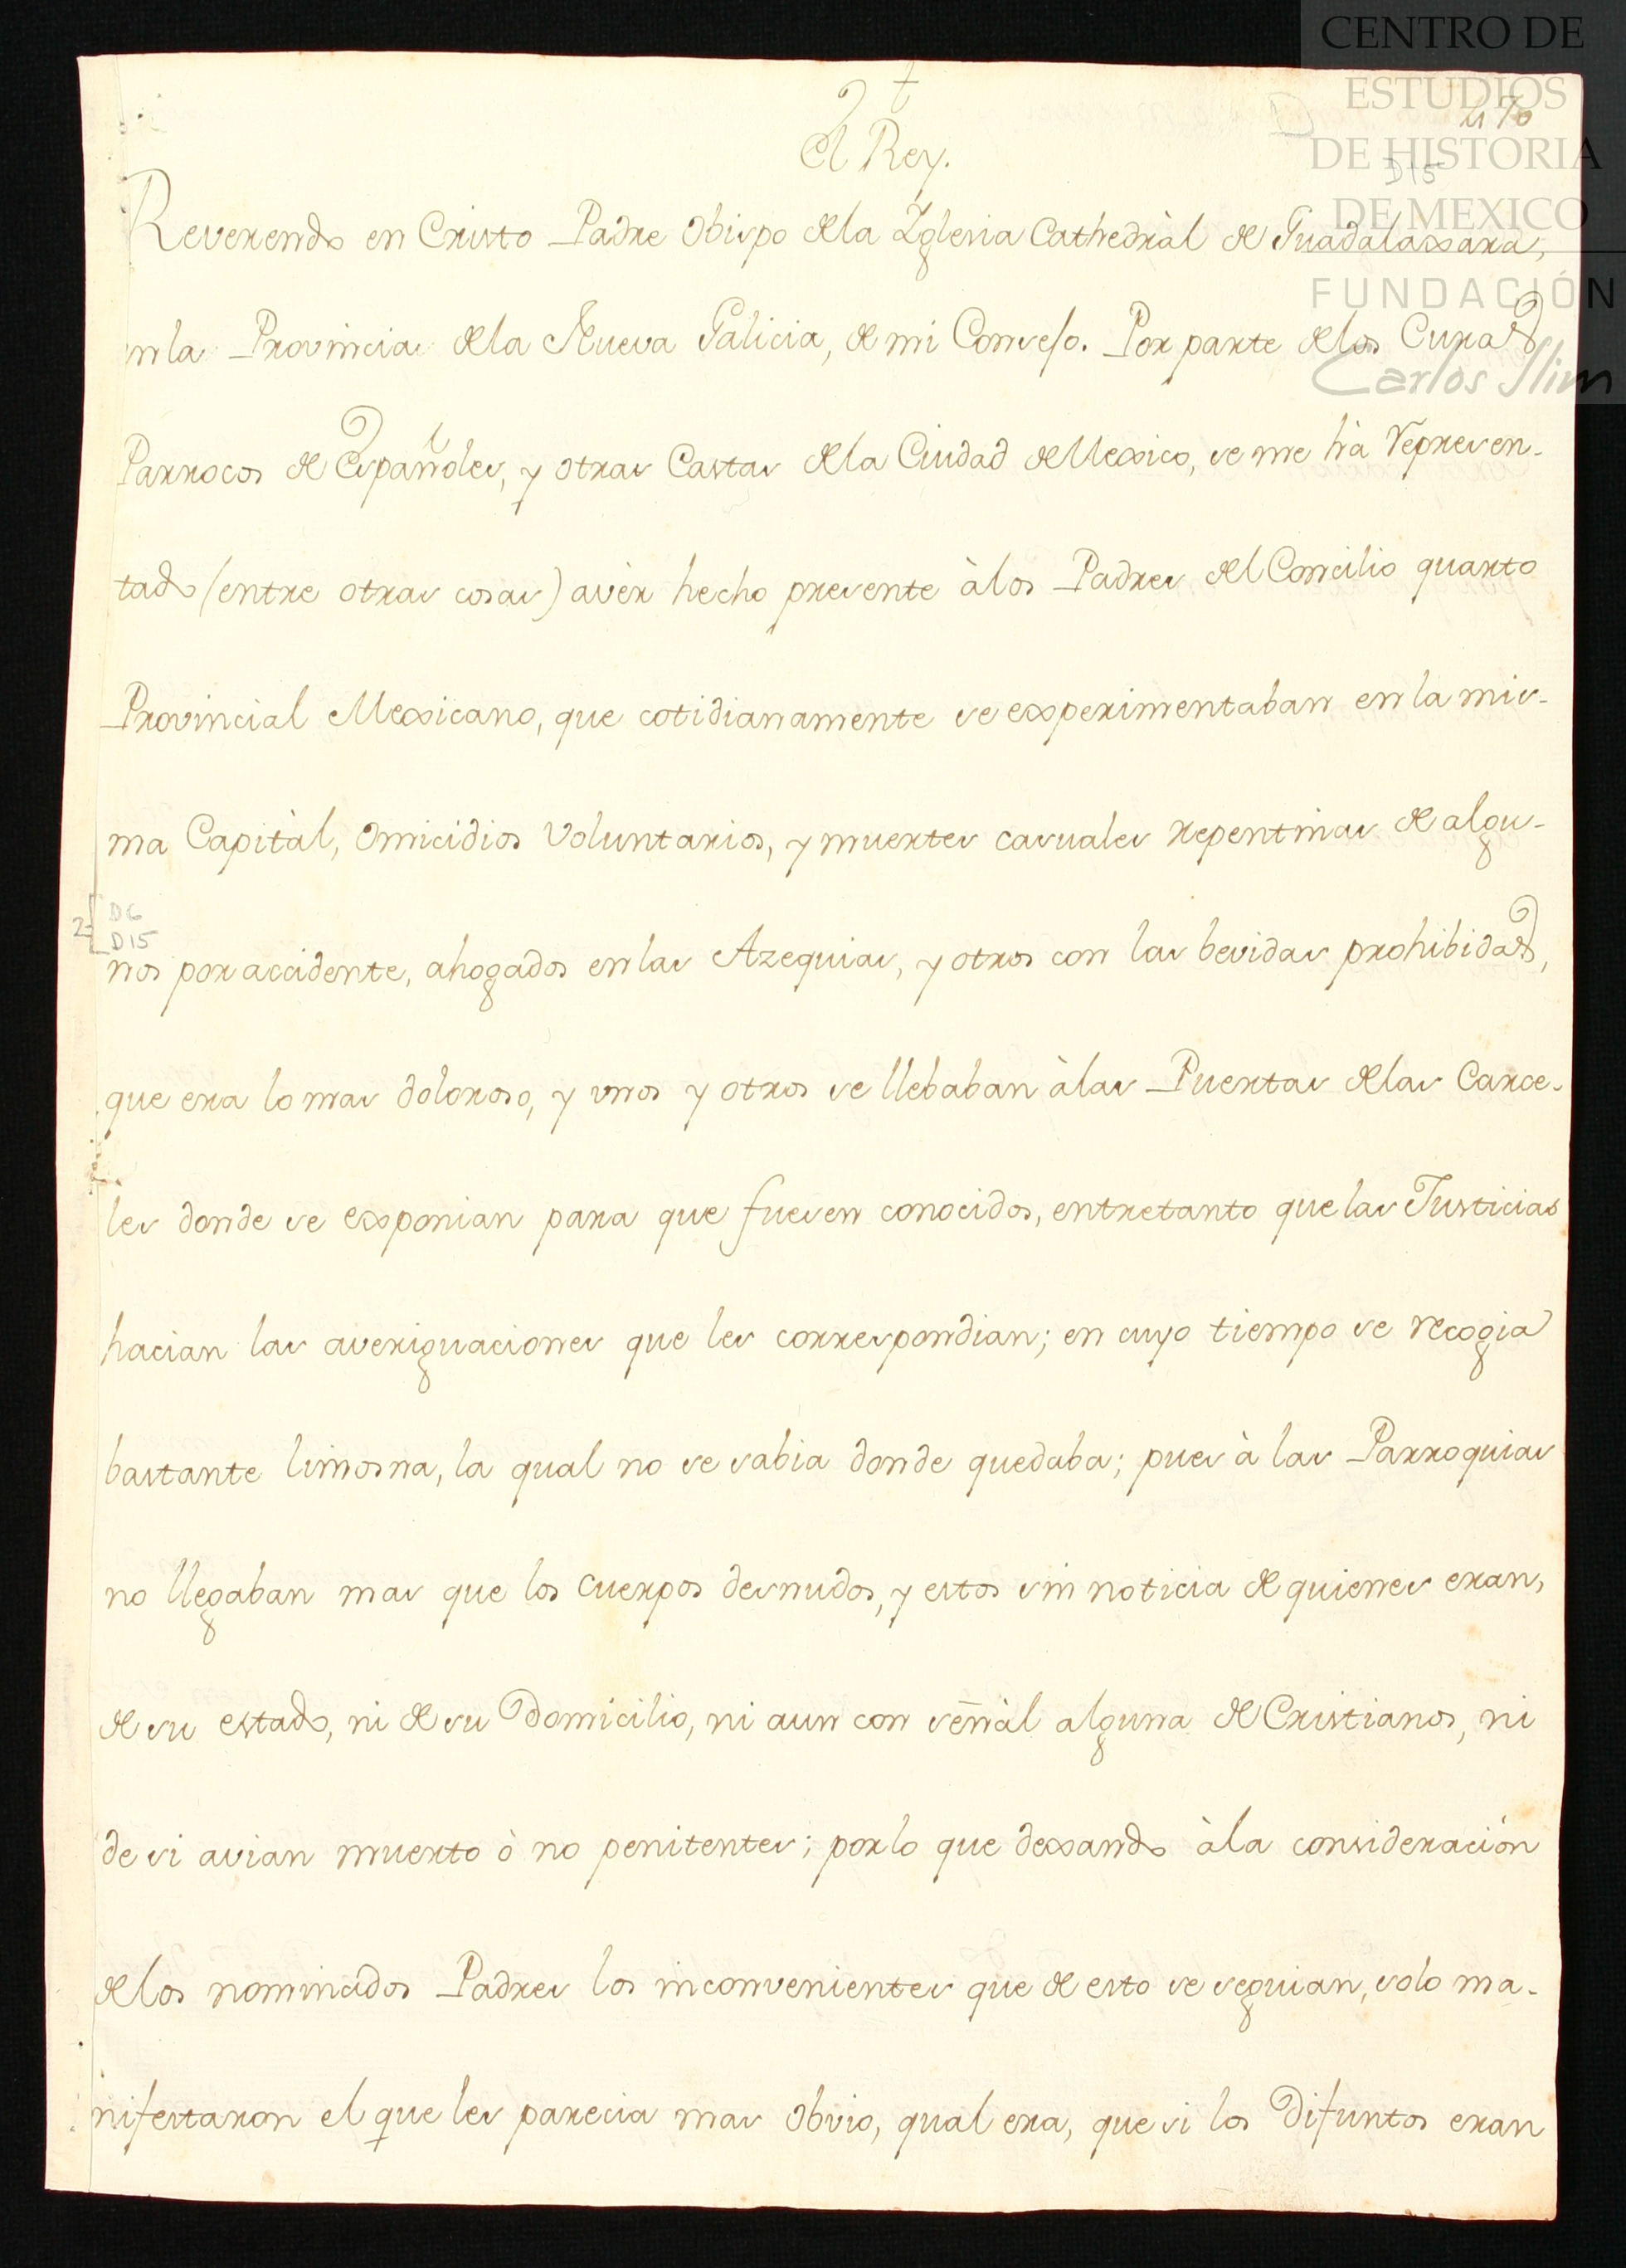 †
El Rey.
Reverendo en Cristo Padre Obispo de la Yglesia Cathedràl de Guadalaxara,
en la Provincia de la Nueva Galicia, de mi Consejo. Por parte de los Curas
Parrocos de Españoles, y otras Castas de la Ciudad de Mexico, se me hà represen-
tado (entre otras cosas) avèr hecho presente à los Padres del Concilio quarto
Provincial Mexicano, que cotidianamente se experimentaban en la mis-
ma Capitàl, Omicidios Voluntarios, y muertes casuales repentinas de algu-
nos por accidente, ahogados en las Azequias, y otros con las bevidas prohibidas,
que era lo mas doloroso, y unos y otros se llebaban à las Puertas de las Carce-
les donde se exponian para que fuesen conocidos, entretanto que las Justicias
hacian las averiguaciones que les correspondian; en cuyo tiempo se recogia
bastante limosna, la qual no se sabia donde quedaba; pues à las Parroquias
no llegaban mas que los cuerpos desnudos, y estos sin noticia de quienes eran,
de su estado, ni de su Domicilio, ni aun con señàl alguna de Cristianos, ni
de si avian muerto ò no penitentes; por lo que dexando à la consideraciòn
de los nominados Padres los inconvenientes que de esto se seguian, solo ma-
nifestaron el que les parecia mas obvio, qual era, que si los Difuntos eran
D6
D15
2
470
D15
CENTRO DE
ESTUDIOS
DE HISTORIA
DE MEXICO
FUNDACIÓN
Carlos Slim